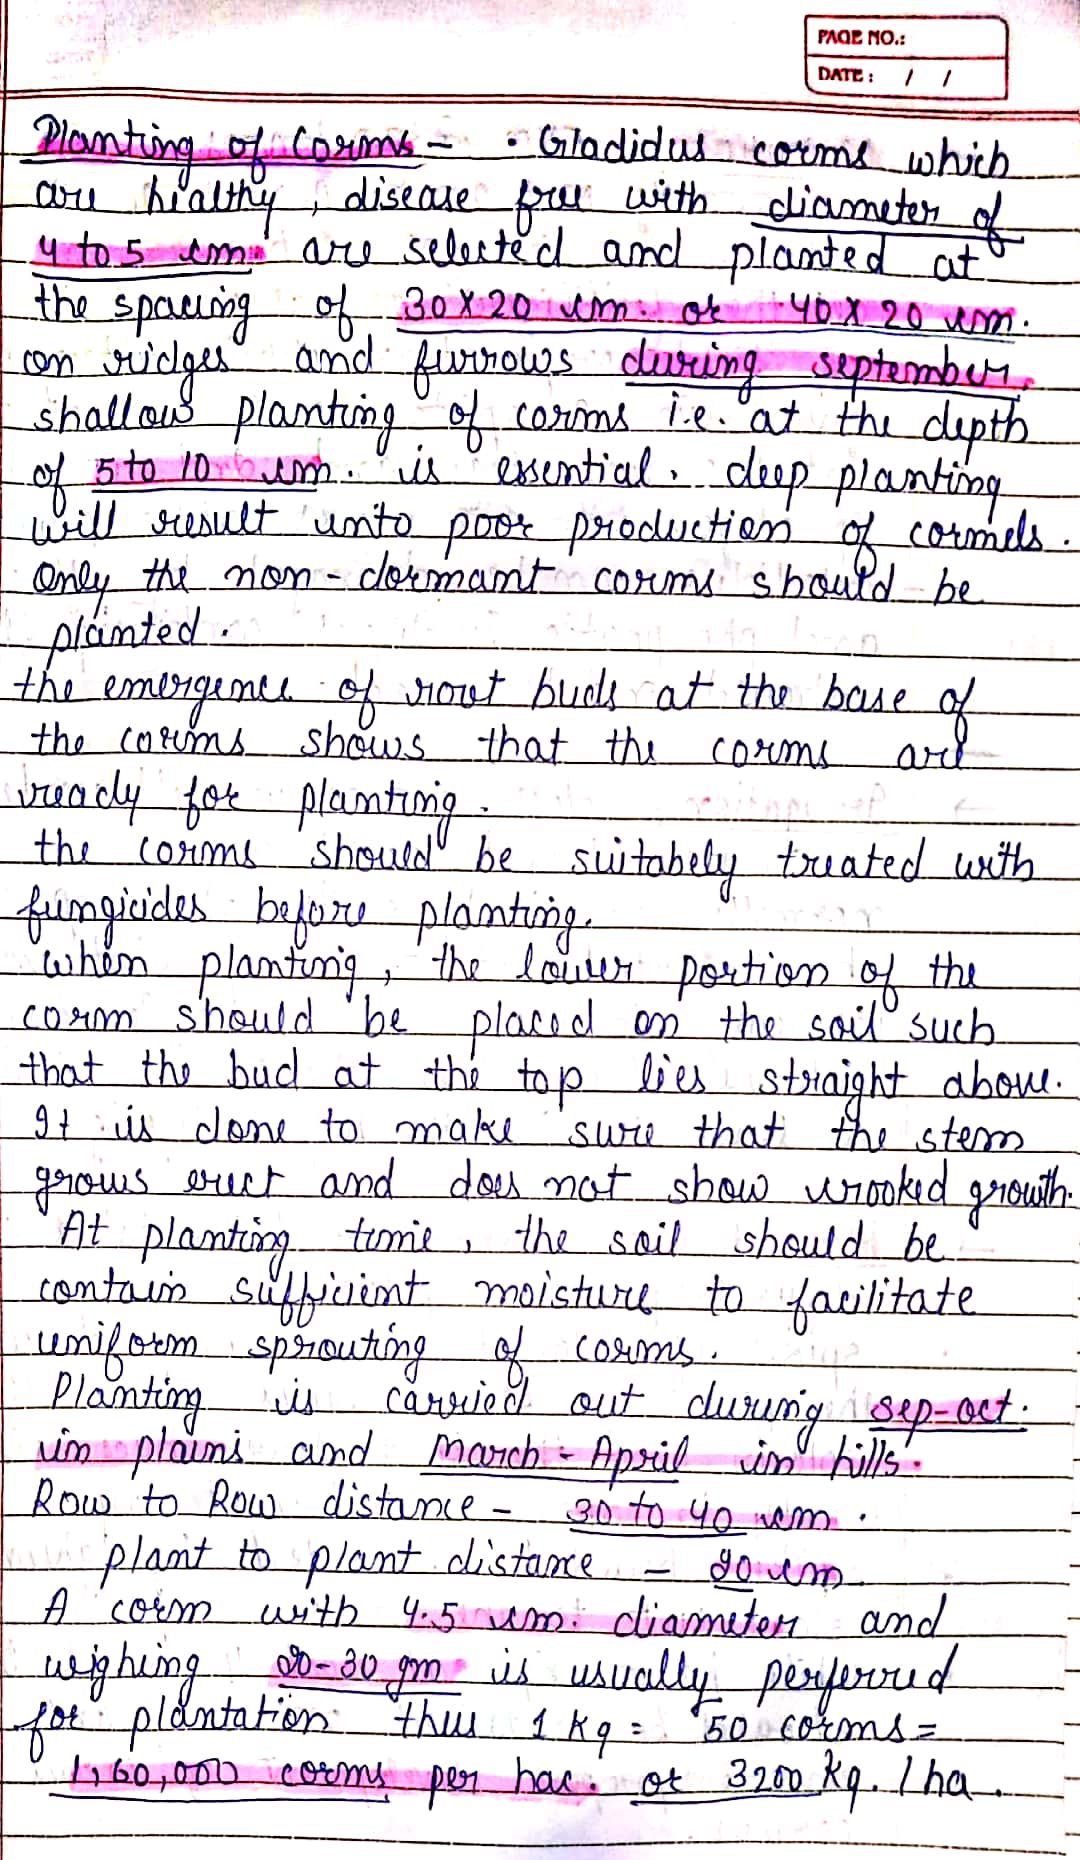 PAGE NO.:
DATE: / /
Planting of Corms - • Gladidus corms which
are healthy, disease free with diameter of
4 to 5 cm. are selected and planted at
the spacing of 30 x 20 cm. or 40 x 20 cm.
on ridges and furrows during september.
shallow planting of corms i.e. at the depth
of 5 to 10 cm. is essential. deep planting
will result unto poor production of cormels.
only the non-dormant corms should be
planted.
the emergence of root buds at the base of
the corms shows that the corms are
ready for planting.
the corms should be suitabely treated with
fungicides before planting.
when planting, the lower portion of the
corm should be placed on the soil such
that the bud at the top lies straight above.
It is done to make sure that the stem
grows erect and does not show crooked growth.
At planting time, the soil should be
contain sufficient moisture to facilitate
uniform sprouting of corms.
Planting is carried out during sep-oct.
in plains and march - April in hills.
Row to Row distance - 30 to 40 cm.
plant to plant distance - 20 cm
A corm with 4.5 cm. diameter and
weighing 20-30 gm is usually perferred
for plantation thus 1 kg = 50 corms =
1,60,000 corms per hac. or 3200 kg. / ha.